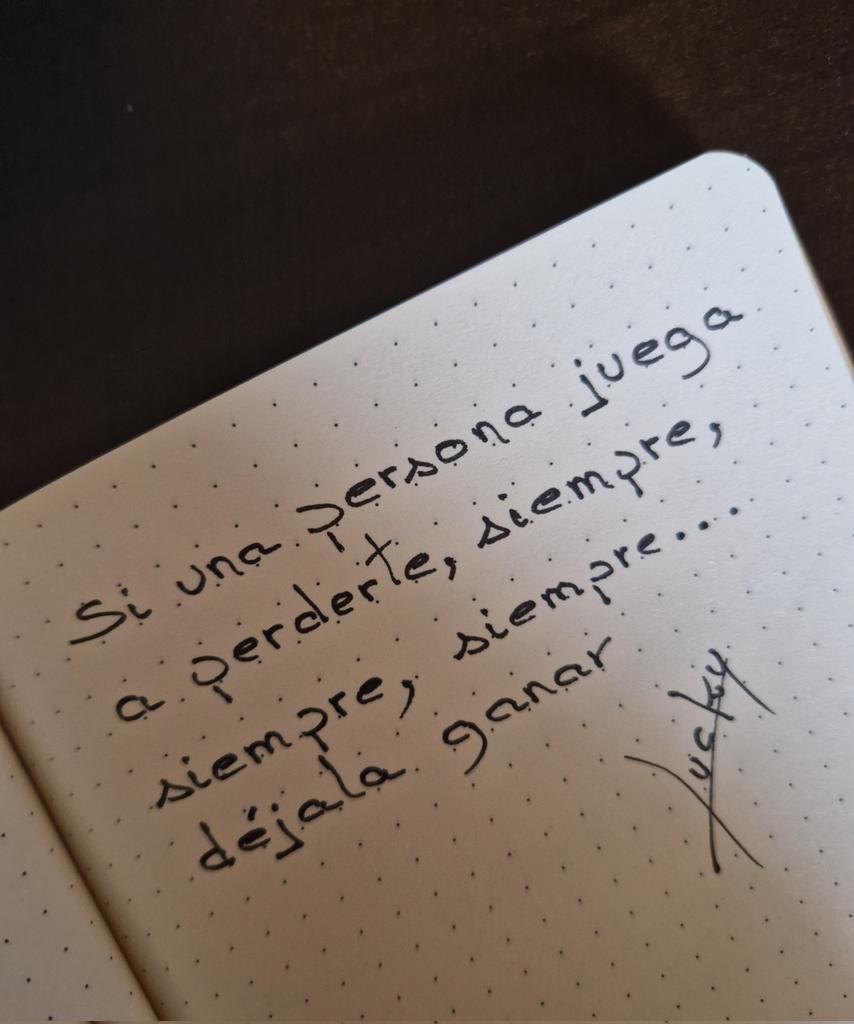 Si una persona juega
a perderte, siempre,
siempre, siempre...
déjala ganar
Lucky